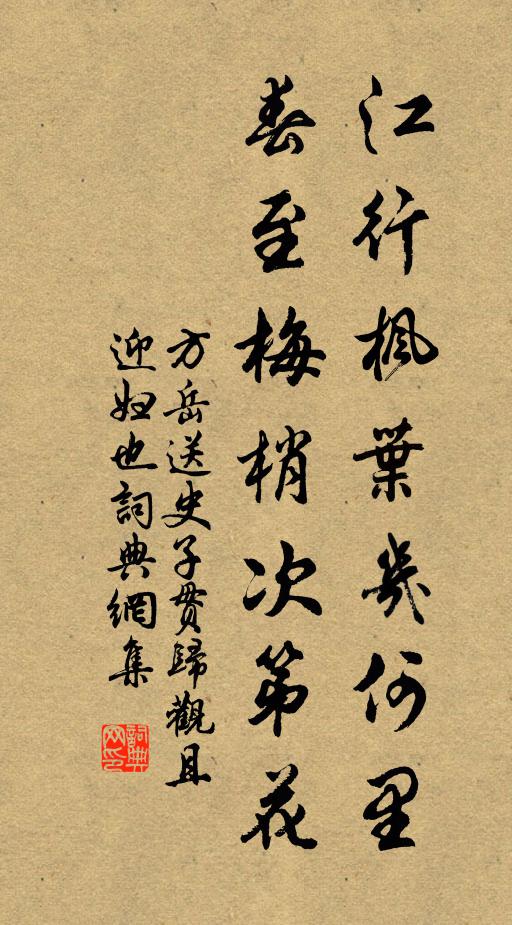 江行楓葉幾何里
春至梅梢次第花
方岳送史子貫歸觀且
迎婦也詞典網集
詞典網印